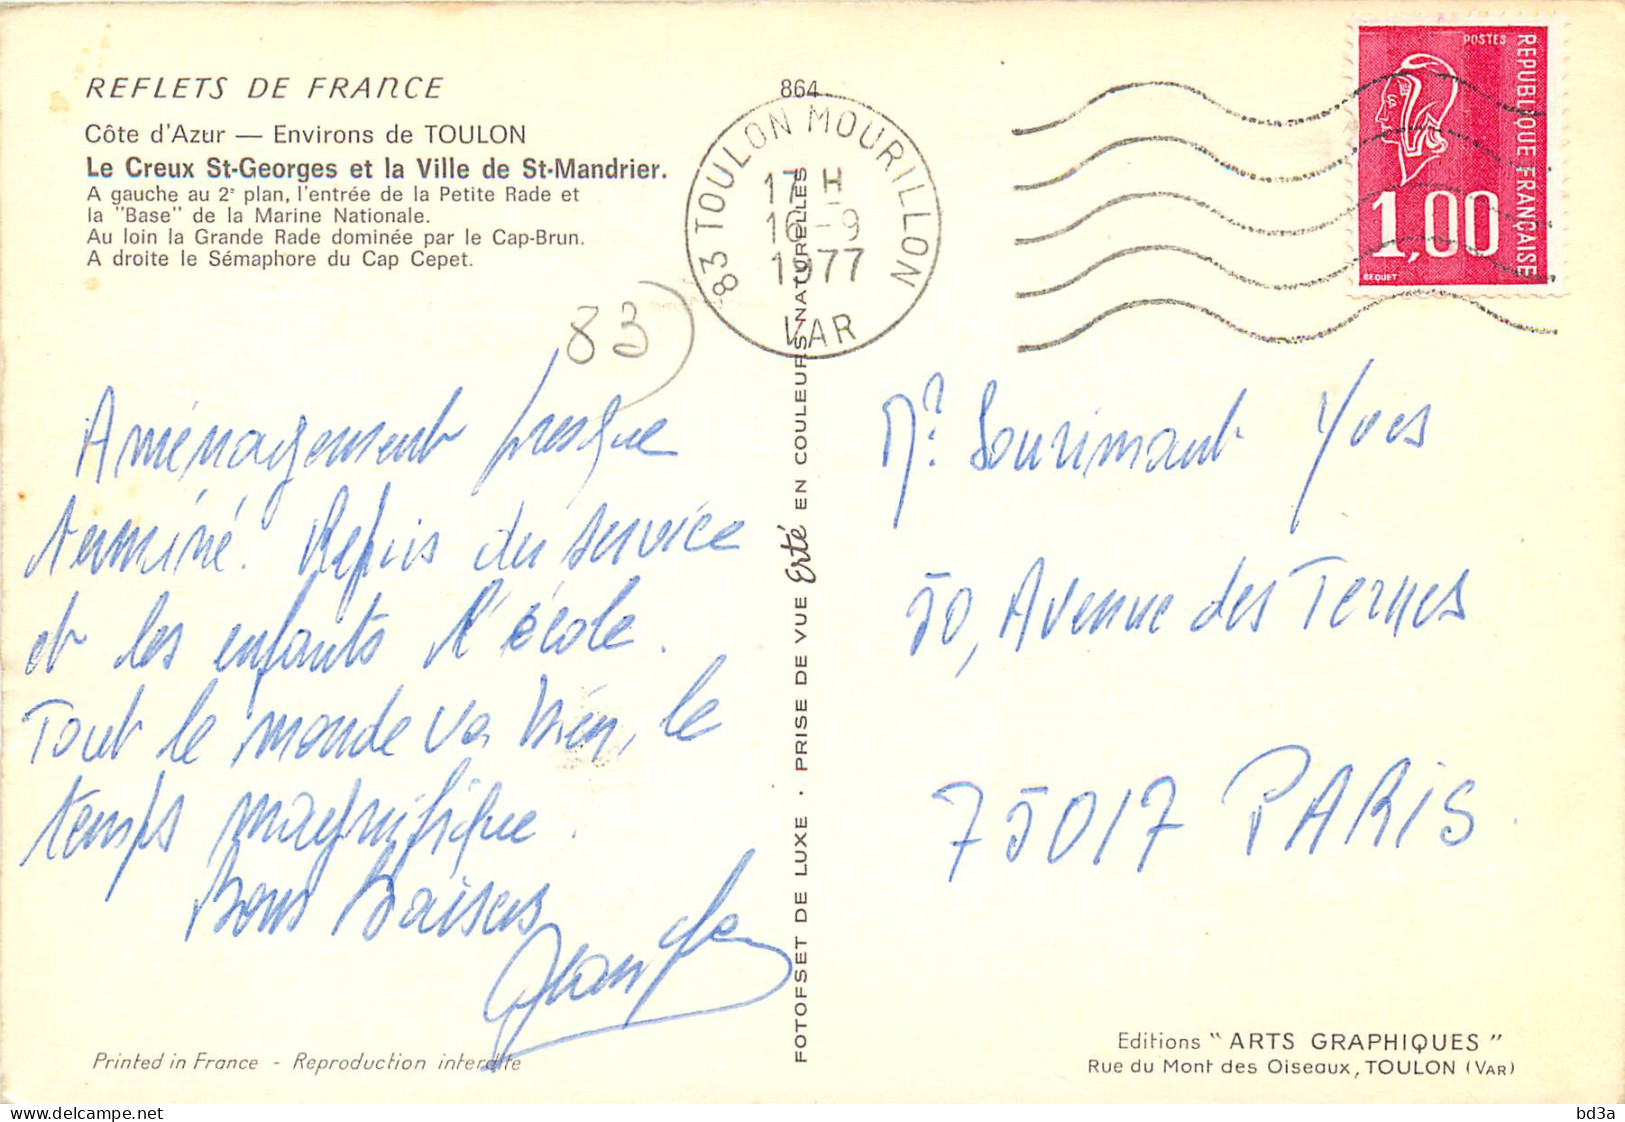 REFLETS DE FRANCE
Côte d'Azur — Environs de TOULON
Le Creux St-Georges et la Ville de St-Mandrier.
A gauche au 2e plan, l'entrée de la Petite Rade et
la "Base" de la Marine Nationale.
Au loin la Grande Rade dominée par le Cap-Brun.
A droite le Sémaphore du Cap Cepet.
864
83 TOULON MOURILLON
17 H
16-9
1977
VAR
POSTES
REPUBLIQUE FRANÇAISE
1,00
BEQUET
83)
Aménagement presque
terminé. Repris du service
et les enfants l'école.
Tout le monde va bien, le
temps magnifique.
Bons Baisers
Mr. Sourimant Yves
50, Avenue des Ternes
75017 PARIS.
FOTOFSET DE LUXE . PRISE DE VUE Erté EN COULEURS NATURELLES
Printed in France - Reproduction interdite
Editions "ARTS GRAPHIQUES"
Rue du Mont des Oiseaux, TOULON (VAR)
delcampe.net
bd3a